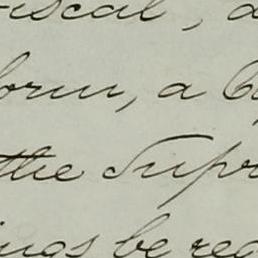 iscal, a
form, a Co
the Supre
ings be reg